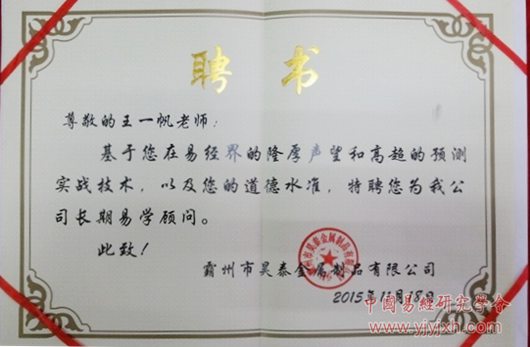 聘书
尊敬的王一帆老师：
基于您在易经界的隆厚声望和高超的预测
实战技术，以及您的道德水准，特聘您为我公
司长期易学顾问。
此致！
霸州市昊泰金属制品有限公司
2015年11月18日
中國易經研究學會
www.yijyjxh.com